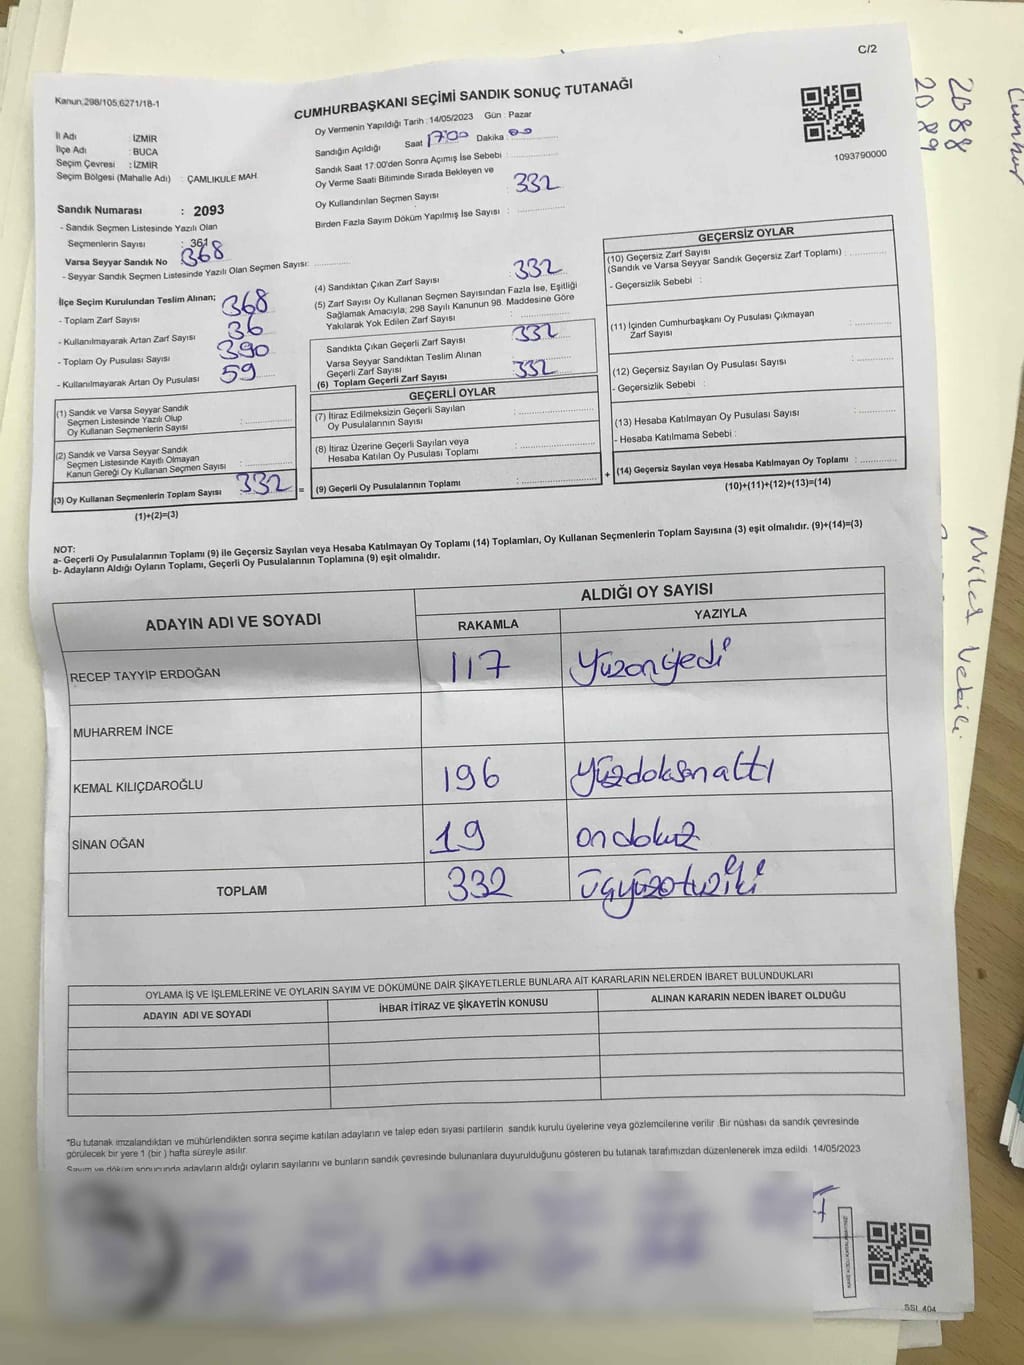 C/2
Kanun,298/105,6271/18-1
CUMHURBAŞKANI SEÇİMİ SANDIK SONUÇ TUTANAĞI
Oy Vermenin Yapıldığı Tarih : 14/05/2023 Gün : Pazar
İl Adı : İZMİR
İlçe Adı : BUCA
Seçim Çevresi : İZMİR
Seçim Bölgesi (Mahalle Adı) : ÇAMLIKULE MAH
Sandığın Açıldığı Saat 17:00 Dakika 00
Sandık Saat 17:00'den Sonra Açımış İse Sebebi :
Oy Verme Saati Bitiminde Sırada Bekleyen ve
Oy Kullandırılan Seçmen Sayısı 332
Birden Fazla Sayım Döküm Yapılmış İse Sayısı :
1093790000
Sandık Numarası : 2093
- Sandık Seçmen Listesinde Yazılı Olan
Seçmenlerin Sayısı : 361
Varsa Seyyar Sandık No 368
- Seyyar Sandık Seçmen Listesinde Yazılı Olan Seçmen Sayısı:
İlçe Seçim Kurulundan Teslim Alınan;
- Toplam Zarf Sayısı 368
- Kullanılmayarak Artan Zarf Sayısı 36
- Toplam Oy Pusulası Sayısı 390
- Kullanılmayarak Artan Oy Pusulası 59
(1) Sandık ve Varsa Seyyar Sandık
Seçmen Listesinde Yazılı Olup
Oy Kullanan Seçmenlerin Sayısı :
(2) Sandık ve Varsa Seyyar Sandık
Seçmen Listesinde Kayıtlı Olmayan
Kanun Gereği Oy Kullanan Seçmen Sayısı :
(3) Oy Kullanan Seçmenlerin Toplam Sayısı : 332 =
(1)+(2)=(3)
(4) Sandıktan Çıkan Zarf Sayısı 332
(5) Zarf Sayısı Oy Kullanan Seçmen Sayısından Fazla İse, Eşitliği
Sağlamak Amacıyla; 298 Sayılı Kanunun 98. Maddesine Göre
Yakılarak Yok Edilen Zarf Sayısı :
Sandıkta Çıkan Geçerli Zarf Sayısı 332
Varsa Seyyar Sandıktan Teslim Alınan
Geçerli Zarf Sayısı
(6) Toplam Geçerli Zarf Sayısı 332
GEÇERLİ OYLAR
(7) İtiraz Edilmeksizin Geçerli Sayılan
Oy Pusulalarının Sayısı :
(8) İtiraz Üzerine Geçerli Sayılan veya
Hesaba Katılan Oy Pusulası Toplamı :
(9) Geçerli Oy Pusulalarının Toplamı : +
GEÇERSİZ OYLAR
(10) Geçersiz Zarf Sayısı
(Sandık ve Varsa Seyyar Sandık Geçersiz Zarf Toplamı) :
- Geçersizlik Sebebi :
(11) İçinden Cumhurbaşkanı Oy Pusulası Çıkmayan
Zarf Sayısı :
(12) Geçersiz Sayılan Oy Pusulası Sayısı :
- Geçersizlik Sebebi :
(13) Hesaba Katılmayan Oy Pusulası Sayısı :
- Hesaba Katılmama Sebebi :
(14) Geçersiz Sayılan veya Hesaba Katılmayan Oy Toplamı :
(10)+(11)+(12)+(13)=(14)
NOT:
a- Geçerli Oy Pusulalarının Toplamı (9) ile Geçersiz Sayılan veya Hesaba Katılmayan Oy Toplamı (14) Toplamları, Oy Kullanan Seçmenlerin Toplam Sayısına (3) eşit olmalıdır. (9)+(14)=(3)
b- Adayların Aldığı Oyların Toplamı, Geçerli Oy Pusulalarının Toplamına (9) eşit olmalıdır.
ADAYIN ADI VE SOYADI ALDIĞI OY SAYISI
RAKAMLA YAZIYLA
RECEP TAYYİP ERDOĞAN 117 Yüzonyedi
MUHARREM İNCE
KEMAL KILIÇDAROĞLU 196 yüzdoksanaltı
SİNAN OĞAN 19 ondokuz
TOPLAM 332 üçyüzotuziki
OYLAMA İŞ VE İŞLEMLERİNE VE OYLARIN SAYIM VE DÖKÜMÜNE DAİR ŞİKAYETLERLE BUNLARA AİT KARARLARIN NELERDEN İBARET BULUNDUKLARI
ADAYIN ADI VE SOYADI İHBAR İTİRAZ VE ŞİKAYETİN KONUSU ALINAN KARARIN NEDEN İBARET OLDUĞU
"Bu tutanak imzalandıktan ve mühürlendikten sonra seçime katılan adayların ve talep eden siyasi partilerin sandık kurulu üyelerine veya gözlemcilerine verilir .Bir nüshası da sandık çevresinde
görülecek bir yere 1 (bir ) hafta süreyle asılır.
Sayım ve döküm sonucunda adayların aldığı oyların sayılarını ve bunların sandık çevresinde bulunanlara duyurulduğunu gösteren bu tutanak tarafımızdan düzenlenerek imza edildi. 14/05/2023
SSI 404
2088
2089
Millet Vekili